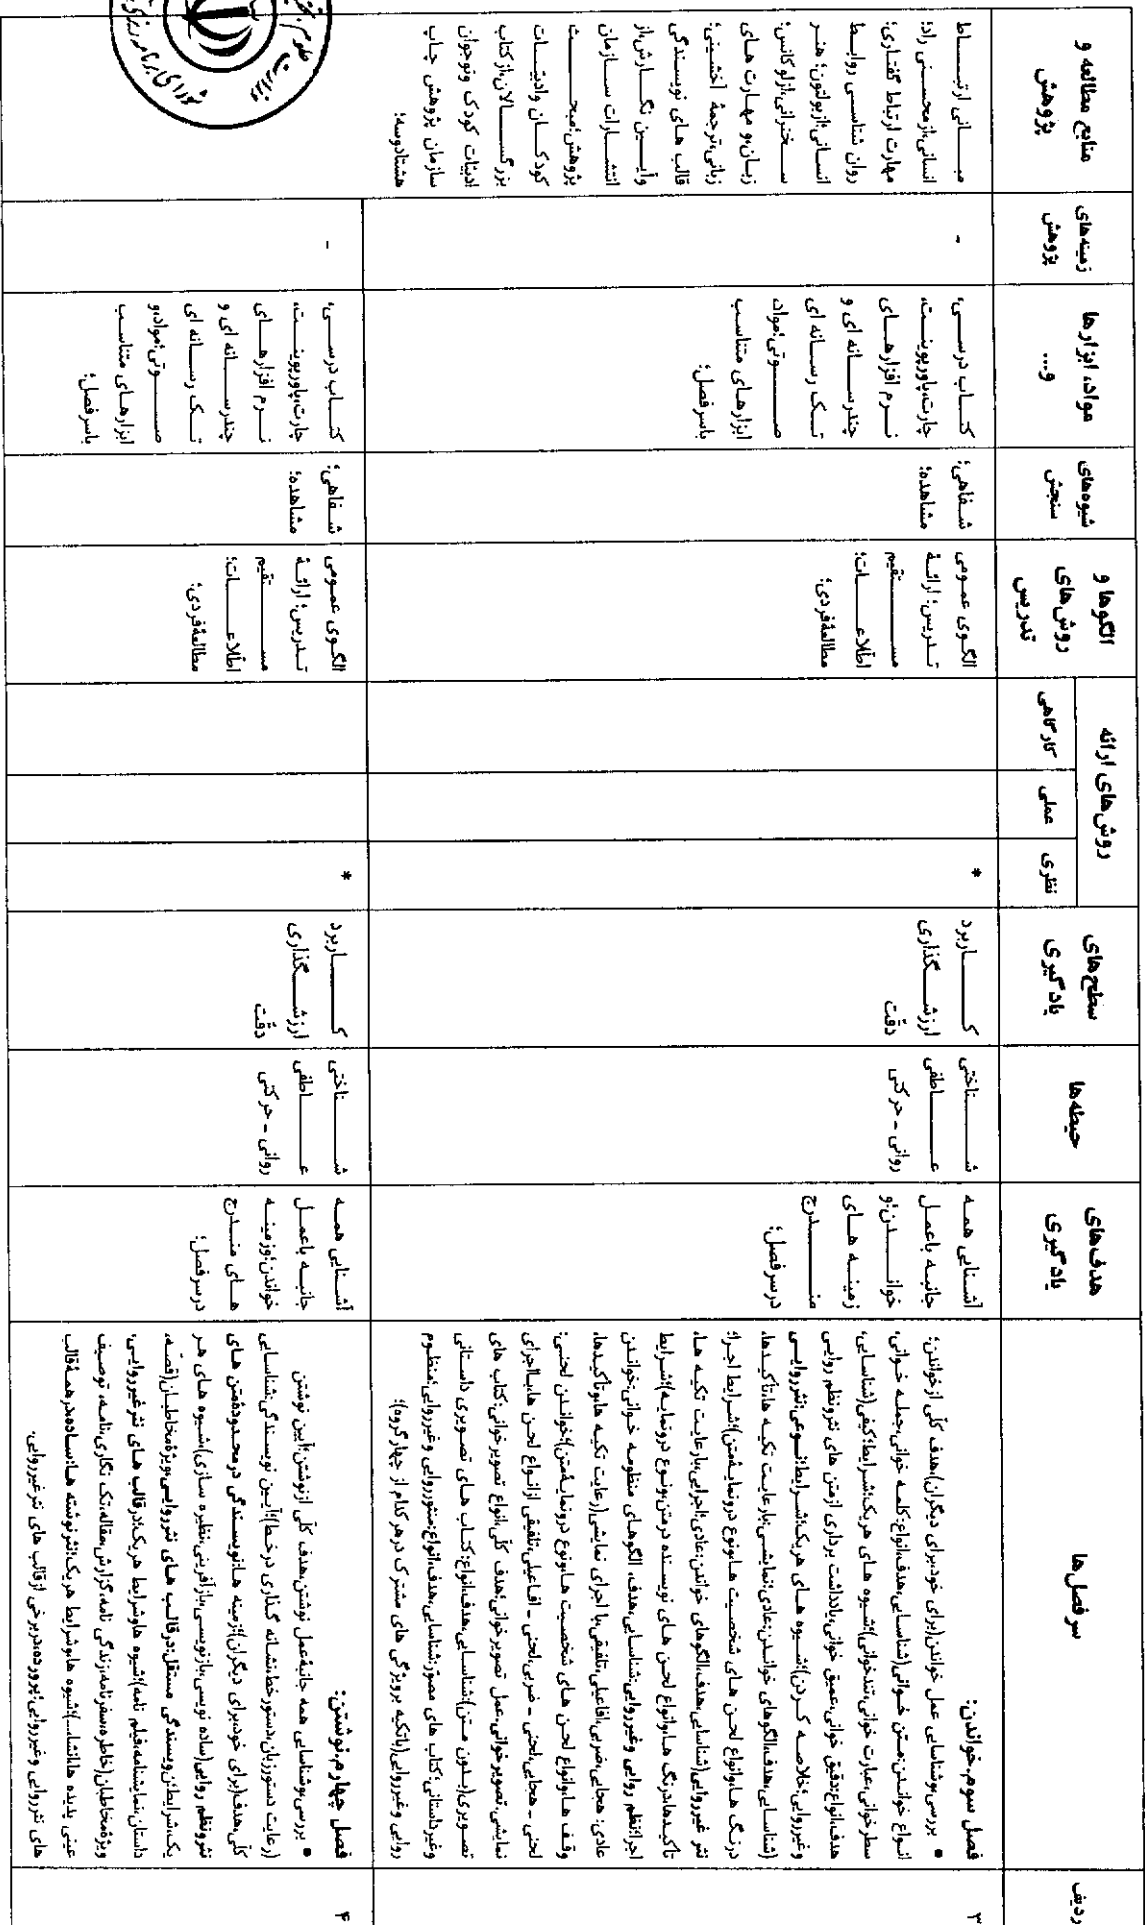 ردیف
سرفصل‌ها
هدف‌های
یادگیری
حیطه‌ها
سطح‌های
یادگیری
روش‌های ارائه
نظری
عملی
کارگاهی
الگوها و
روش‌های
تدریس
شیوه‌های
سنجش
مواد، ابزارها
و...
زمینه‌های
پژوهش
منابع مطالعه و
پژوهش
۳
فصل سوم،خواندن:
• بررسی‌وشناسایی عمل خواندن(برای خود،برای دیگران)،هدف کلّی ازخواندن؛
انواع خواندن:متن خوانی(شناسایی،هدف،انواع:کلمه خوانی،جمله خوانی،
سطرخوانی،عبارت خوانی،تندخوانی)؛شیوه های هریک،شرایط؛کیفی(شناسایی،
هدف،انواع:دقیق خوانی،عمیق خوانی،یادداشت برداری ازمتن های نثرونظم روایی
وغیرروایی؛خلاصه کردن)؛شیوه های هریک؛شرایط؛نوعی،نثرروایی
(شناسایی،هدف،الگوهای خواندن:عادی؛نمایشی،بارعایت تکیه ها،تأکیدها،
درنگ هاوانواع لحن های شخصیت هاونوع درونمایۀمتن)؛شرایط اجرا؛
نثر غیرروایی(شناسایی،هدف،الگوهای خواندن:عادی؛اجرایی،بارعایت تکیه ها،
تأکیدها،درنگ هاوانواع لحن های نویسنده درمتن،ونوع درونمایه)؛شرایط
اجرا؛نظم روایی وغیرروایی:شناسایی،هدف، الگوهای منظومه خوانی:خواندن
عادی: هجایی،ضربی،افاعیلی،تلفیقی،با اجرای نمایشی(رعایت تکیه هاوتأکیدها،
وقف هاوانواع لحن های شخصیت هاونوع درونمایۀمتن)؛خواندن لحنی:
لحنی - هجایی،لحنی - ضربی،لحنی - افاعیلی،تلفیقی ازانواع لحن ها،بااجرای
نمایشی.تصویرخوانی،عمل تصویرخوانی؛هدف کلّی،انواع تصویرخوانی:کتاب های
تصویری(بدون متن):شناسایی،هدف،انواع:کتاب های تصویری داستانی
وغیرداستانی؛کتاب های مصوّر:شناسایی،هدف،انواع:منثورروایی وغیرروایی؛منظوم
روایی وغیرروایی(باتکیه برویژگی های مشترک درهرکدام از چهارگروه)؛
آشنایی همه
جانبه باعمل
خواندن؛و
زمینه های
مندرج
درسرفصل؛
شناختی
عاطفی
روانی - حرکتی
کاربرد
ارزشگذاری
دقّت
*
الگوی عمومی
تدریس؛ ارائۀ
مستقیم
اطّلاعات؛
مطالعۀفردی؛
شفاهی؛
مشاهده؛
کتاب درسی،
چارت،پاورپوینت،
نرم افزارهای
چندرسانه ای و
تک رسانه ای
صوتی؛مواد،
ابزارهای متناسب
باسرفصل؛
-
مبانی ارتباط
انسانی،ازمحسنی راد؛
مهارت ارتباط گفتاری؛
روان شناسی روابط
انسانی؛ازبولتون؛ هنر
سخنرانی،ازلوکاس؛
زبان،و مهارت های
زبانی،ترجمۀ اخشینی؛
قالب های نویسندگی
وآیین نگارش،از
انتشارات سازمان
پژوهش؛مبحث
کودکان وادبیّات
بزرگسالان،ازکتاب
ادبیّات کودک ونوجوان
سازمان پژوهش چاپ
هشتادوسه؛
۴
فصل چهارم،نوشتن:
• بررسی‌وشناسایی همه جانبۀعمل نوشتن،هدف کلّی ازنوشتن؛آیین نوشتن
(رعایت دستورزبان،دستورخط،نشانه گذاری درخط)؛آیین نویسندگی:شناسایی
کلّی،هدف(برای خود،برای دیگران)؛زمینه ها،نویسندگی درمحدودۀمتن های
نثرونظم روایی(ساده نویسی،بازنویسی،بازآفرینی،نظیره سازی)،شیوه های هر
یک،شرایط؛نویسندگی مستقل:درقالب های نثرروایی،ویژۀمخاطبان(قصّه،
داستان،نمایشنامه،فیلم نامه)؛شیوه هاوشرایط هریک؛درقالب های نثرغیرروایی،
ویژۀمخاطبان(خاطره،سفرنامه،زندگی نامه،گزارش،مقاله،تک نگاری،نامه، توصیف
عینی پدیده ها،انشا...)؛شیوه هاوشرایط هریک؛نثرنوشته ها:ساده،درهمۀقالب
های نثرروایی وغیرروایی؛پرورده،دربرخی ازقالب های نثرغیرروایی.
آشنایی همه
جانبه باعمل
خواندن؛وزمینه
های مندرج
درسرفصل؛
شناختی
عاطفی
روانی - حرکتی
کاربرد
ارزشگذاری
دقّت
*
الگوی عمومی
تدریس؛ ارائۀ
مستقیم
اطّلاعات؛
مطالعۀفردی؛
شفاهی؛
مشاهده؛
کتاب درسی،
چارت،پاورپوینت،
نرم افزارهای
چندرسانه ای و
تک رسانه ای
صوتی؛مواد،و
ابزارهای متناسب
باسرفصل؛
-
شورای برنامه ریزی